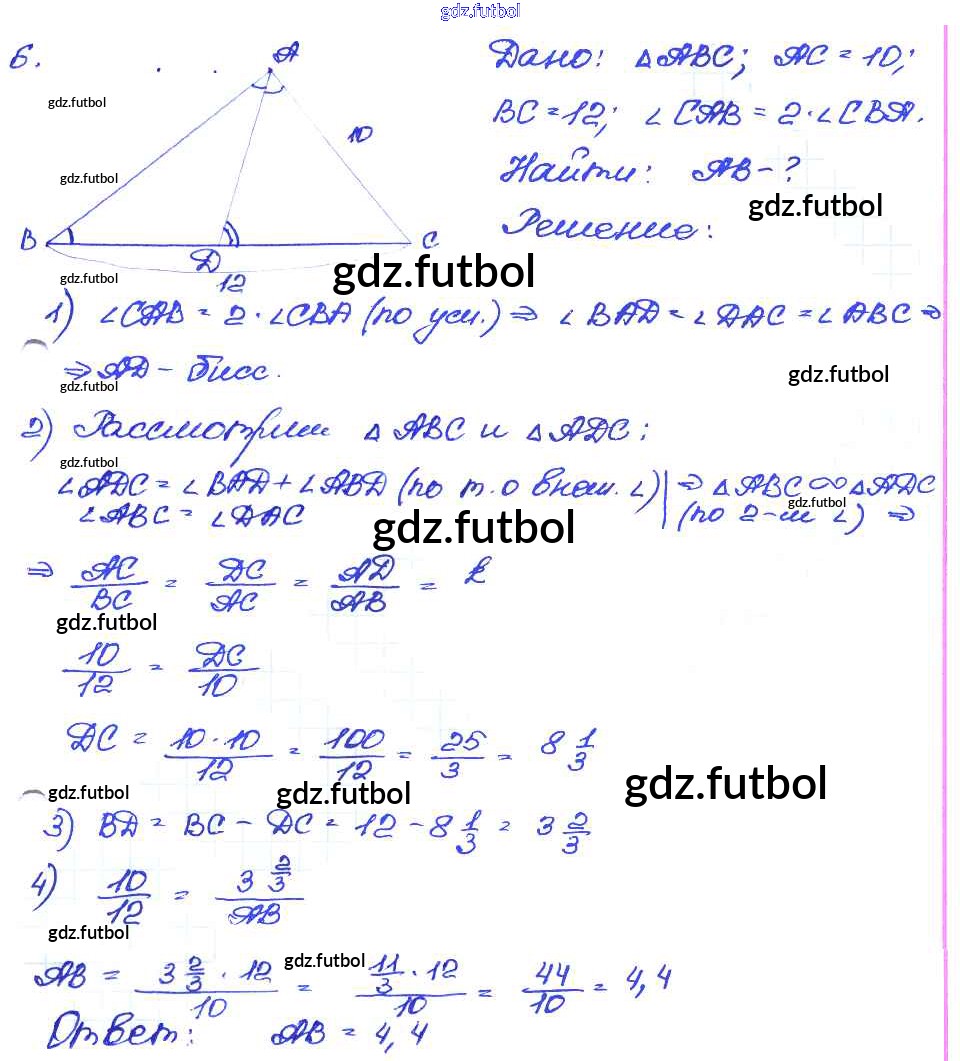 gdz.futbol
6.
A
Дано: △ABC; AC = 10;
gdz.futbol
10
BC = 12; ∠CAB = 2·∠CBA.
gdz.futbol
Найти: AB - ?
gdz.futbol
B D C
Решение:
gdz.futbol
12
gdz.futbol
1) ∠CAB = 2·∠CBA (по усл.) ⇒ ∠BAD = ∠DAC = ∠ABC ⇒
⇒ AD - бисс.
gdz.futbol
gdz.futbol
2) Рассмотрим △ABC и △ADC:
gdz.futbol
∠ADC = ∠BAD + ∠ABD (по т. о внеш. ∠) | ⇒ △ABC ∞ △ADC
gdz.futbol
∠ABC = ∠DAC | (по 2-м ∠) ⇒
gdz.futbol
⇒ AC/BC = DC/AC = AD/AB = k
gdz.futbol
10/12 = DC/10
DC = 10·10/12 = 100/12 = 25/3 = 8 1/3
gdz.futbol
gdz.futbol
gdz.futbol
3) BD = BC - DC = 12 - 8 1/3 = 3 2/3
4) 10/12 = 3 2/3 / AB
gdz.futbol
gdz.futbol
AB = 3 2/3 · 12 / 10 = 11/3 · 12 / 10 = 44/10 = 4,4
Ответ: AB = 4,4